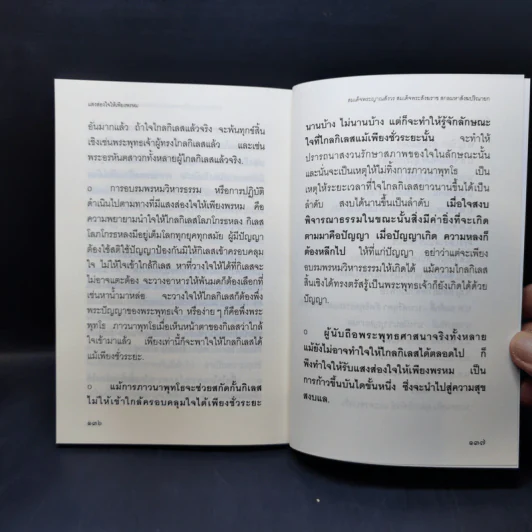 แสงส่องใจให้เพียงพรหม
อันมากแล้ว ถ้าใจไกลกิเลสแล้วจริง จะพ้นทุกข์สิ้น
เชิงเช่นพระพุทธเจ้าผู้ทรงไกลกิเลสแล้ว และเช่น
พระอรหันตสาวกทั้งหลายผู้ไกลกิเลสแล้วจริง.
๐ การอบรมพรหมวิหารธรรม หรือการปฏิบัติ
ดำเนินไปตามทางที่มีแสงส่องใจให้เพียงพรหม คือ
ความพยายามนำใจให้ไกลกิเลสโลภโกรธหลง กิเลส
โลภโกรธหลงมีอยู่เต็มโลกทุกยุคทุกสมัย ผู้มีปัญญา
ต้องใช้สติใช้ปัญญาป้องกันมิให้กิเลสเข้าครอบคลุม
ใจ ไม่ให้ใจเข้าใกล้กิเลส หาที่วางใจให้ได้ที่กิเลสจะ
ไม่อาจแตะต้อง จะวางอาหารให้พ้นมดก็ต้องเลือกที่
เช่นหาน้ำมาหล่อ จะวางใจให้ไกลกิเลสก็ต้องพึ่ง
พระปัญญาของพระพุทธเจ้า หรือง่าย ๆ ก็คือพึ่งพระ
พุทโธ ภาวนาพุทโธเมื่อเห็นหน้าตาของกิเลสว่าใกล้
ใจเข้ามาแล้ว เพียงเท่านี้ก็จะพาใจให้ไกลกิเลสได้
แม้เพียงชั่วระยะ.
๐ แม้การภาวนาพุทโธจะช่วยสกัดกั้นกิเลส
ไม่ให้เข้าใกล้ครอบคลุมใจได้เพียงชั่วระยะ
๑๓๖
สมเด็จพระญาณสังวร สมเด็จพระสังฆราช สกลมหาสังฆปริณายก
นานบ้าง ไม่นานบ้าง แต่ก็จะทำให้รู้จักลักษณะ
ใจที่ไกลกิเลสแม้เพียงชั่วระยะนั้น จะทำให้
ปรารถนาสงวนรักษาสภาพของใจในลักษณะนั้น
และนั่นจะเป็นเหตุให้ไม่ทิ้งการภาวนาพุทโธ เป็น
เหตุให้ระยะเวลาที่ใจไกลกิเลสยาวนานขึ้นได้เป็น
ลำดับ สงบได้นานขึ้นเป็นลำดับ เมื่อใจสงบ
พิจารณาธรรมในขณะนั้นสิ่งมีค่ายิ่งที่จะเกิด
ตามมาคือปัญญา เมื่อปัญญาเกิด ความหลงก็
ต้องหลีกไป ให้ที่แก่ปัญญา อย่าว่าแต่จะเพียง
อบรมพรหมวิหารธรรมให้เกิดได้ แม้ความไกลกิเลส
สิ้นเชิงได้ทรงตรัสรู้เป็นพระพุทธเจ้าก็ยังเกิดได้ด้วย
ปัญญา.
๐ ผู้นับถือพระพุทธศาสนาจริงทั้งหลาย
แม้ยังไม่อาจทำใจให้ไกลกิเลสได้ตลอดไป ก็
พึงทำใจให้รับแสงส่องใจให้เพียงพรหม เป็น
การก้าวขึ้นบันไดขั้นหนึ่ง ซึ่งจะนำไปสู่ความสุข
สงบแล.
๑๓๗